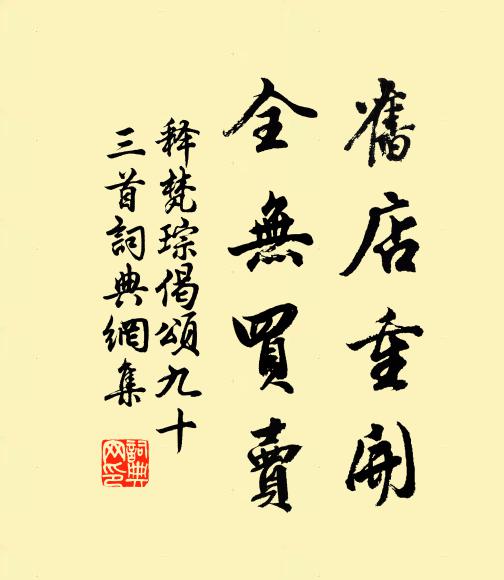 舊店重開
全無買賣
释梵琮偈頌九十
三首詞典網集
詞典
网印